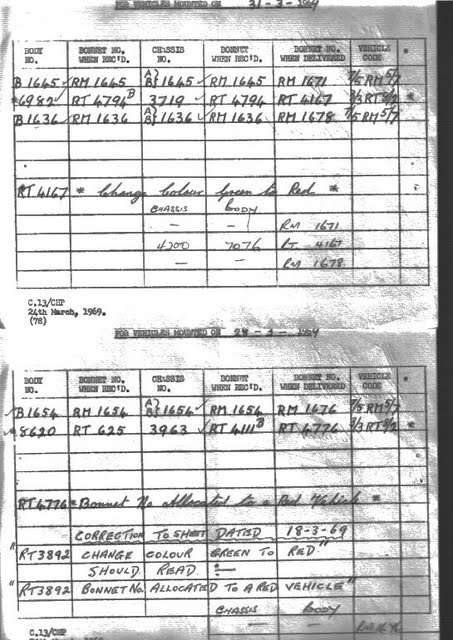 FOR VEHICLES MOUNTED ON 31-3-1969
BODY NO. BONNET NO. WHEN REC'D. CHASSIS NO. BONNET WHEN REC'D. BONNET NO. WHEN DELIVERED VEHICLE CODE *
B1645 ✓ RM 1645 A) B) 1645 ✓ RM 1645 RM 1671 7/5 RM 5/7
*6982 ✓ RT 4794 B 3719 ✓ RT 4794 RT 4167 3/3 RT 8/2 *
B1636 ✓ RM 1636 A) 1636 ✓ RM 1636 RM 1678 7/5 RM 5/7
RT 4167 * Change Colour Green to Red *
CHASSIS BODY
— — RM 1671
4200 7076 RT 4167
— — RM 1678
C.13/CHP
24th March, 1969.
(78)
FOR VEHICLES MOUNTED ON 28-3-1969
BODY NO. BONNET NO. WHEN REC'D. CHASSIS NO. BONNET WHEN REC'D. BONNET NO. WHEN DELIVERED VEHICLE CODE *
B1654 RM 1654 A) B) 1654 ✓ RM 1654 RM 1676 7/5 RM 5/7
*8620 RT 625 3963 ✓ RT 4111 B RT 4776 3/3 RT 8/2 *
RT4776 * Bonnet No Allocated to a Red Vehicle *
CORRECTION TO SHEET DATED 18-3-69
"RT3892 CHANGE COLOUR GREEN TO RED"
SHOULD READ :—
"RT3892 BONNET NO. ALLOCATED TO A RED VEHICLE"
CHASSIS BODY
— —
C.13/CHP